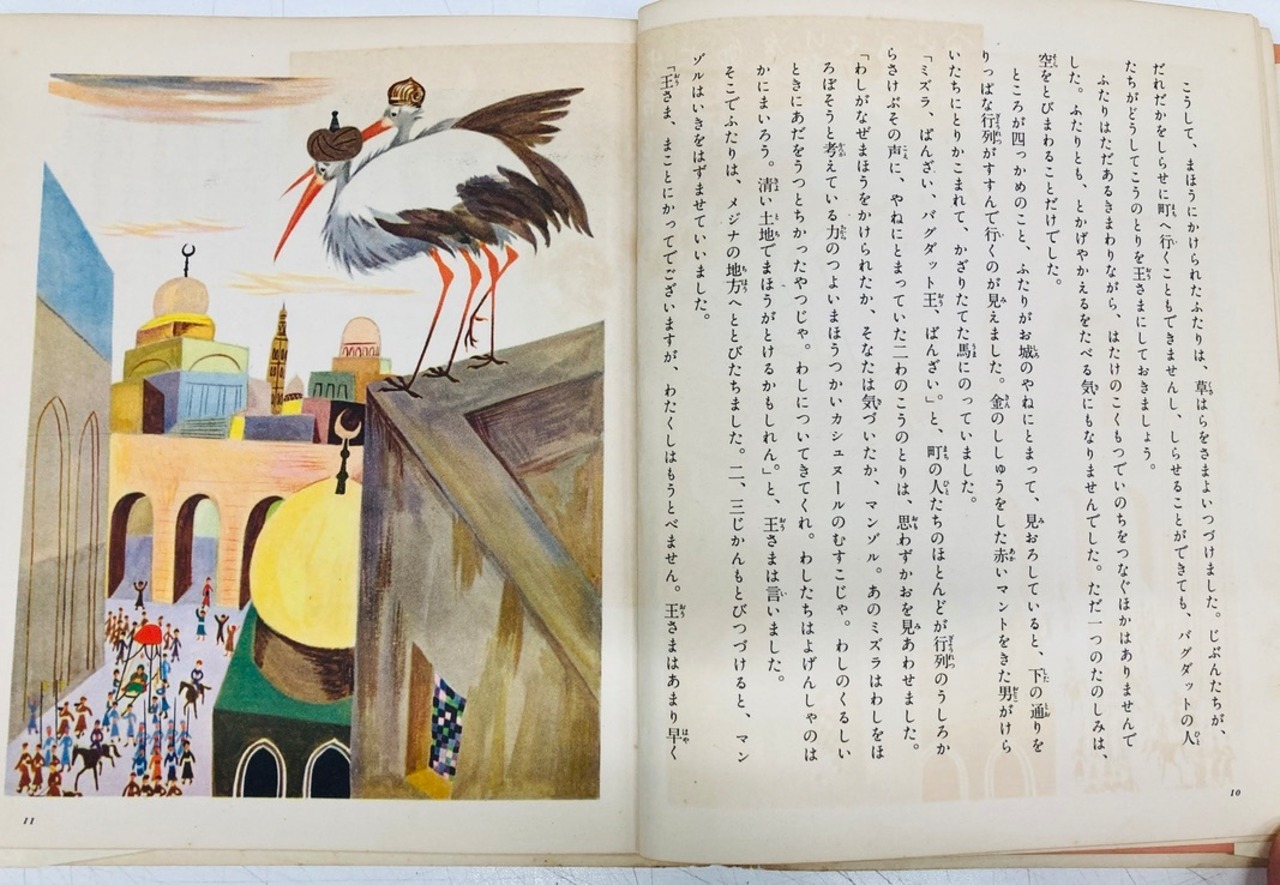 こうして、まほうにかけられたふたりは、草はらをさまよいつづけました。じぶんたちが、
だれだかをしらせに町へ行くこともできませんし、しらせることができても、バグダットの人
たちがどうしてこうのとりを王さまにしておきましょう。
ふたりはただあるきまわりながら、はたけのこくもつでいのちをつなぐほかはありませんで
した。ふたりとも、とかげやかえるをたべる気にもなりませんでした。ただ一つのたのしみは、
空をとびまわることだけでした。
ところが四っかめのこと、ふたりがお城のやねにとまって、見おろしていると、下の通りを
りっぱな行列がすすんで行くのが見えました。金のししゅうをした赤いマントをきた男がけら
いたちにとりかこまれて、かざりたてた馬にのっていました。
「ミズラ、ばんざい、バグダット王、ばんざい」。と、町の人たちのほとんどが行列のうしろか
らさけぶその声に、やねにとまっていた二わのこうのとりは、思わずかおを見あわせました。
「わしがなぜまほうをかけられたか、そなたは気づいたか、マンゾル。あのミズラはわしをほ
ろぼそうと考えている力のつよいまほうつかいカシュヌールのむすこじゃ。わしのくるしい
ときにあだをうつとちかったやつじゃ。わしについてきてくれ。わしたちはよげんしゃのは
かにまいろう。清い土地でまほうがとけるかもしれん」。と、王さまは言いました。
そこでふたりは、メジナの地方へととびたちました。二、三じかんもとびつづけると、マン
ゾルはいきをはずませていいました。
「王さま、まことにかってでございますが、わたくしはもうとべません。王さまはあまり早く
10
11